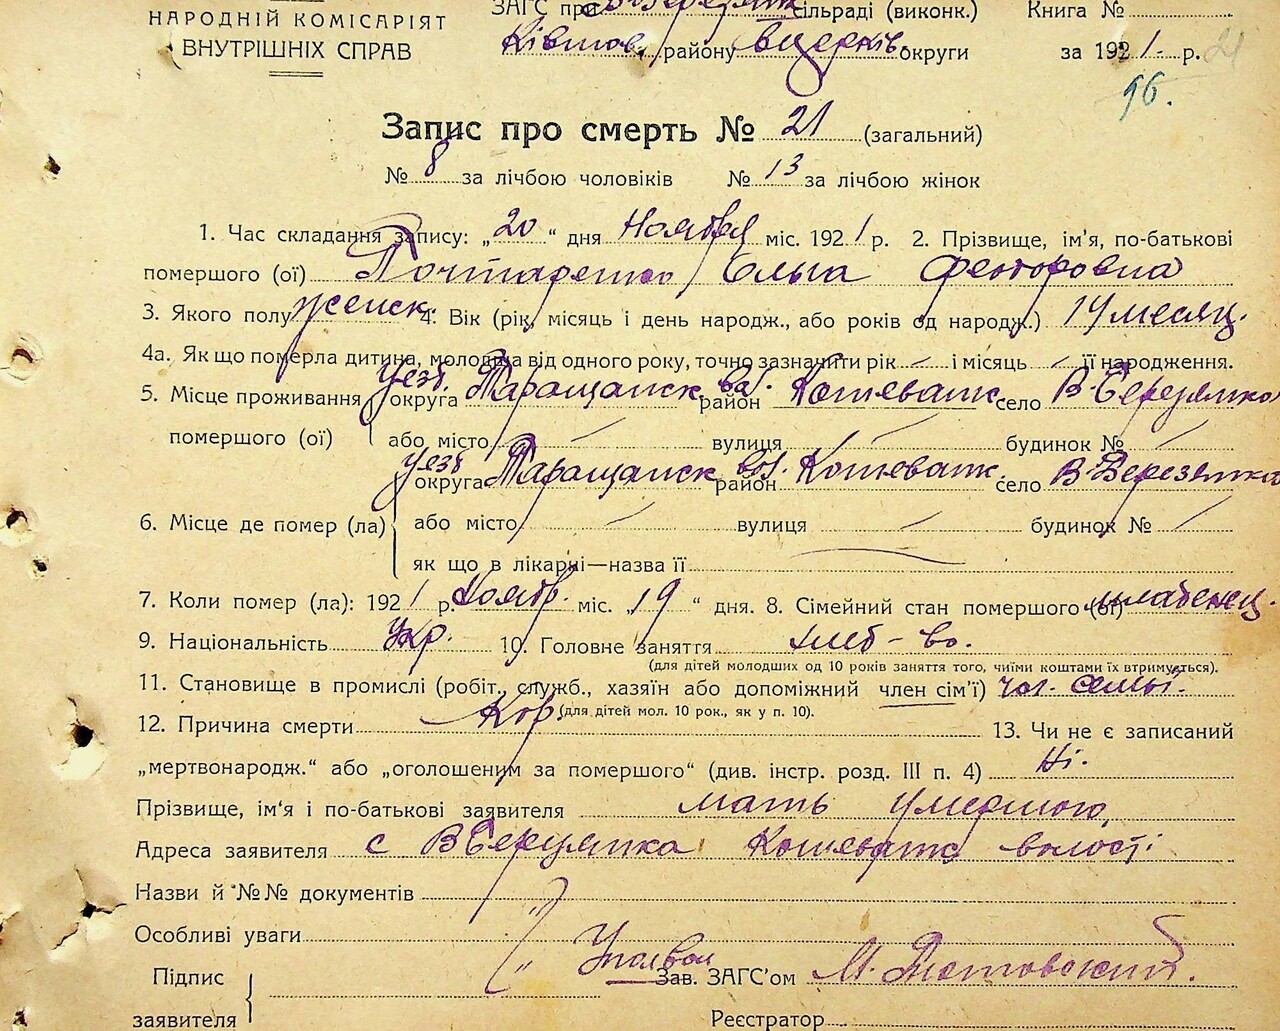 НАРОДНІЙ КОМІСАРІЯТ
ВНУТРІШНІХ СПРАВ
ЗАГС при сільраді (виконк.)
району округи
Книга №
за 1921 р. 21
96.
Запис про смерть № 21 (загальний)
№ 8 за лічбою чоловіків № 13 за лічбою жінок
1. Час складання запису: „20“ дня Ноября міс. 1921 р. 2. Прізвище, ім’я, по-батькові
помершого (ої) Ольга Феоторовна
3. Якого полу женск. 4. Вік (рік, місяць і день народж., або років од народж.) 14 месяц.
4а. Як що померла дитина, молодша від одного року, точно зазначити рік — і місяць — її народження.
5. Місце проживання уезд. округа Таращанск. вол. район Кошеватск село В-Березянка
помершого (ої) або місто — вулиця — будинок № —
уезд округа Таращанск вол. район Кошеватск. село В-Березянка
6. Місце де помер (ла) або місто — вулиця — будинок № —
як що в лікарні—назва її
7. Коли помер (ла): 1921 р. Ноябр. міс. „19“ дня. 8. Сімейний стан помершого (ої) младенец.
9. Національність Укр. 10. Головне заняття хлеб-во.
(для дітей молодших од 10 років заняття того, чиїми коштами їх втримується).
11. Становище в промислі (робіт., служб., хазяїн або допоміжний член сім’ї) чл. семьї.
(для дітей мол. 10 рок., як у п. 10).
12. Причина смерти Кор 13. Чи не є записаний
„мертвонародж.“ або „оголошеним за помершого“ (див. інстр. розд. III п. 4) Ні.
Прізвище, ім’я і по-батькові заявителя мать умершого,
Адреса заявителя с ВБерезянка Кошеватс волості
Назви й №№ документів
Особливі уваги
Підпис
заявителя
Зав. ЗАГС’ом М.
Реєстратор